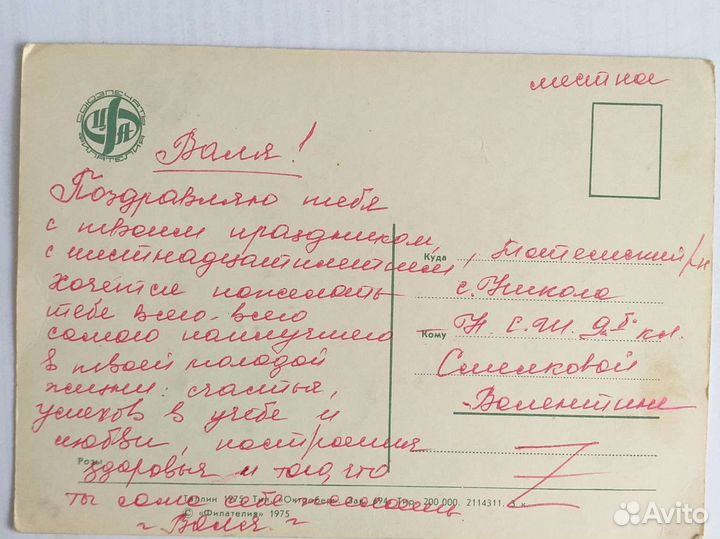 местное
СОЮЗПЕЧАТЬ
ЦФА
ФИЛАТЕЛИЯ
Валя!
Поздравляю тебя
с твоим праздником,
с шестнадцатилетием,
Хочется пожелать
тебе всего-всего
самого наилучшего
в твоей молодой
жизни: счастья,
успехов в учёбе и
любви, настроения
здоровья и того, что
ты сама себе желаешь
г. Валя. г
Куда Тотемский р/н
с. Никола
Кому Н. С. Ш. 9 кл.
Смелковой
Валентине
Розы
Таллин 1975 Тип. «Октообер» Зак. 694 Тир. 200 000. 2114311. 3 к.
© «Филателия» 1975
Avito